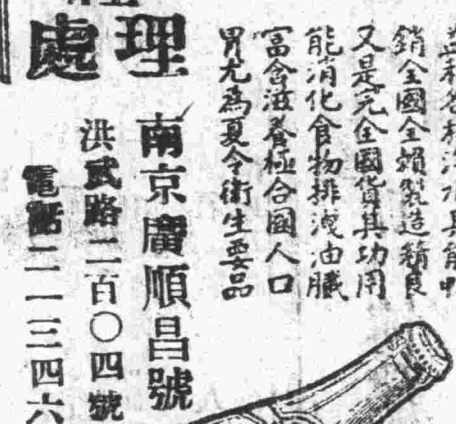 銷全國全賴製造精良
又是完全國貨其功用
能消化食物排洩油膩
富含滋養極合國人口
胃尤為夏令衛生要品
理處
南京廣順昌號
洪武路二百〇四號
電話二一三四六